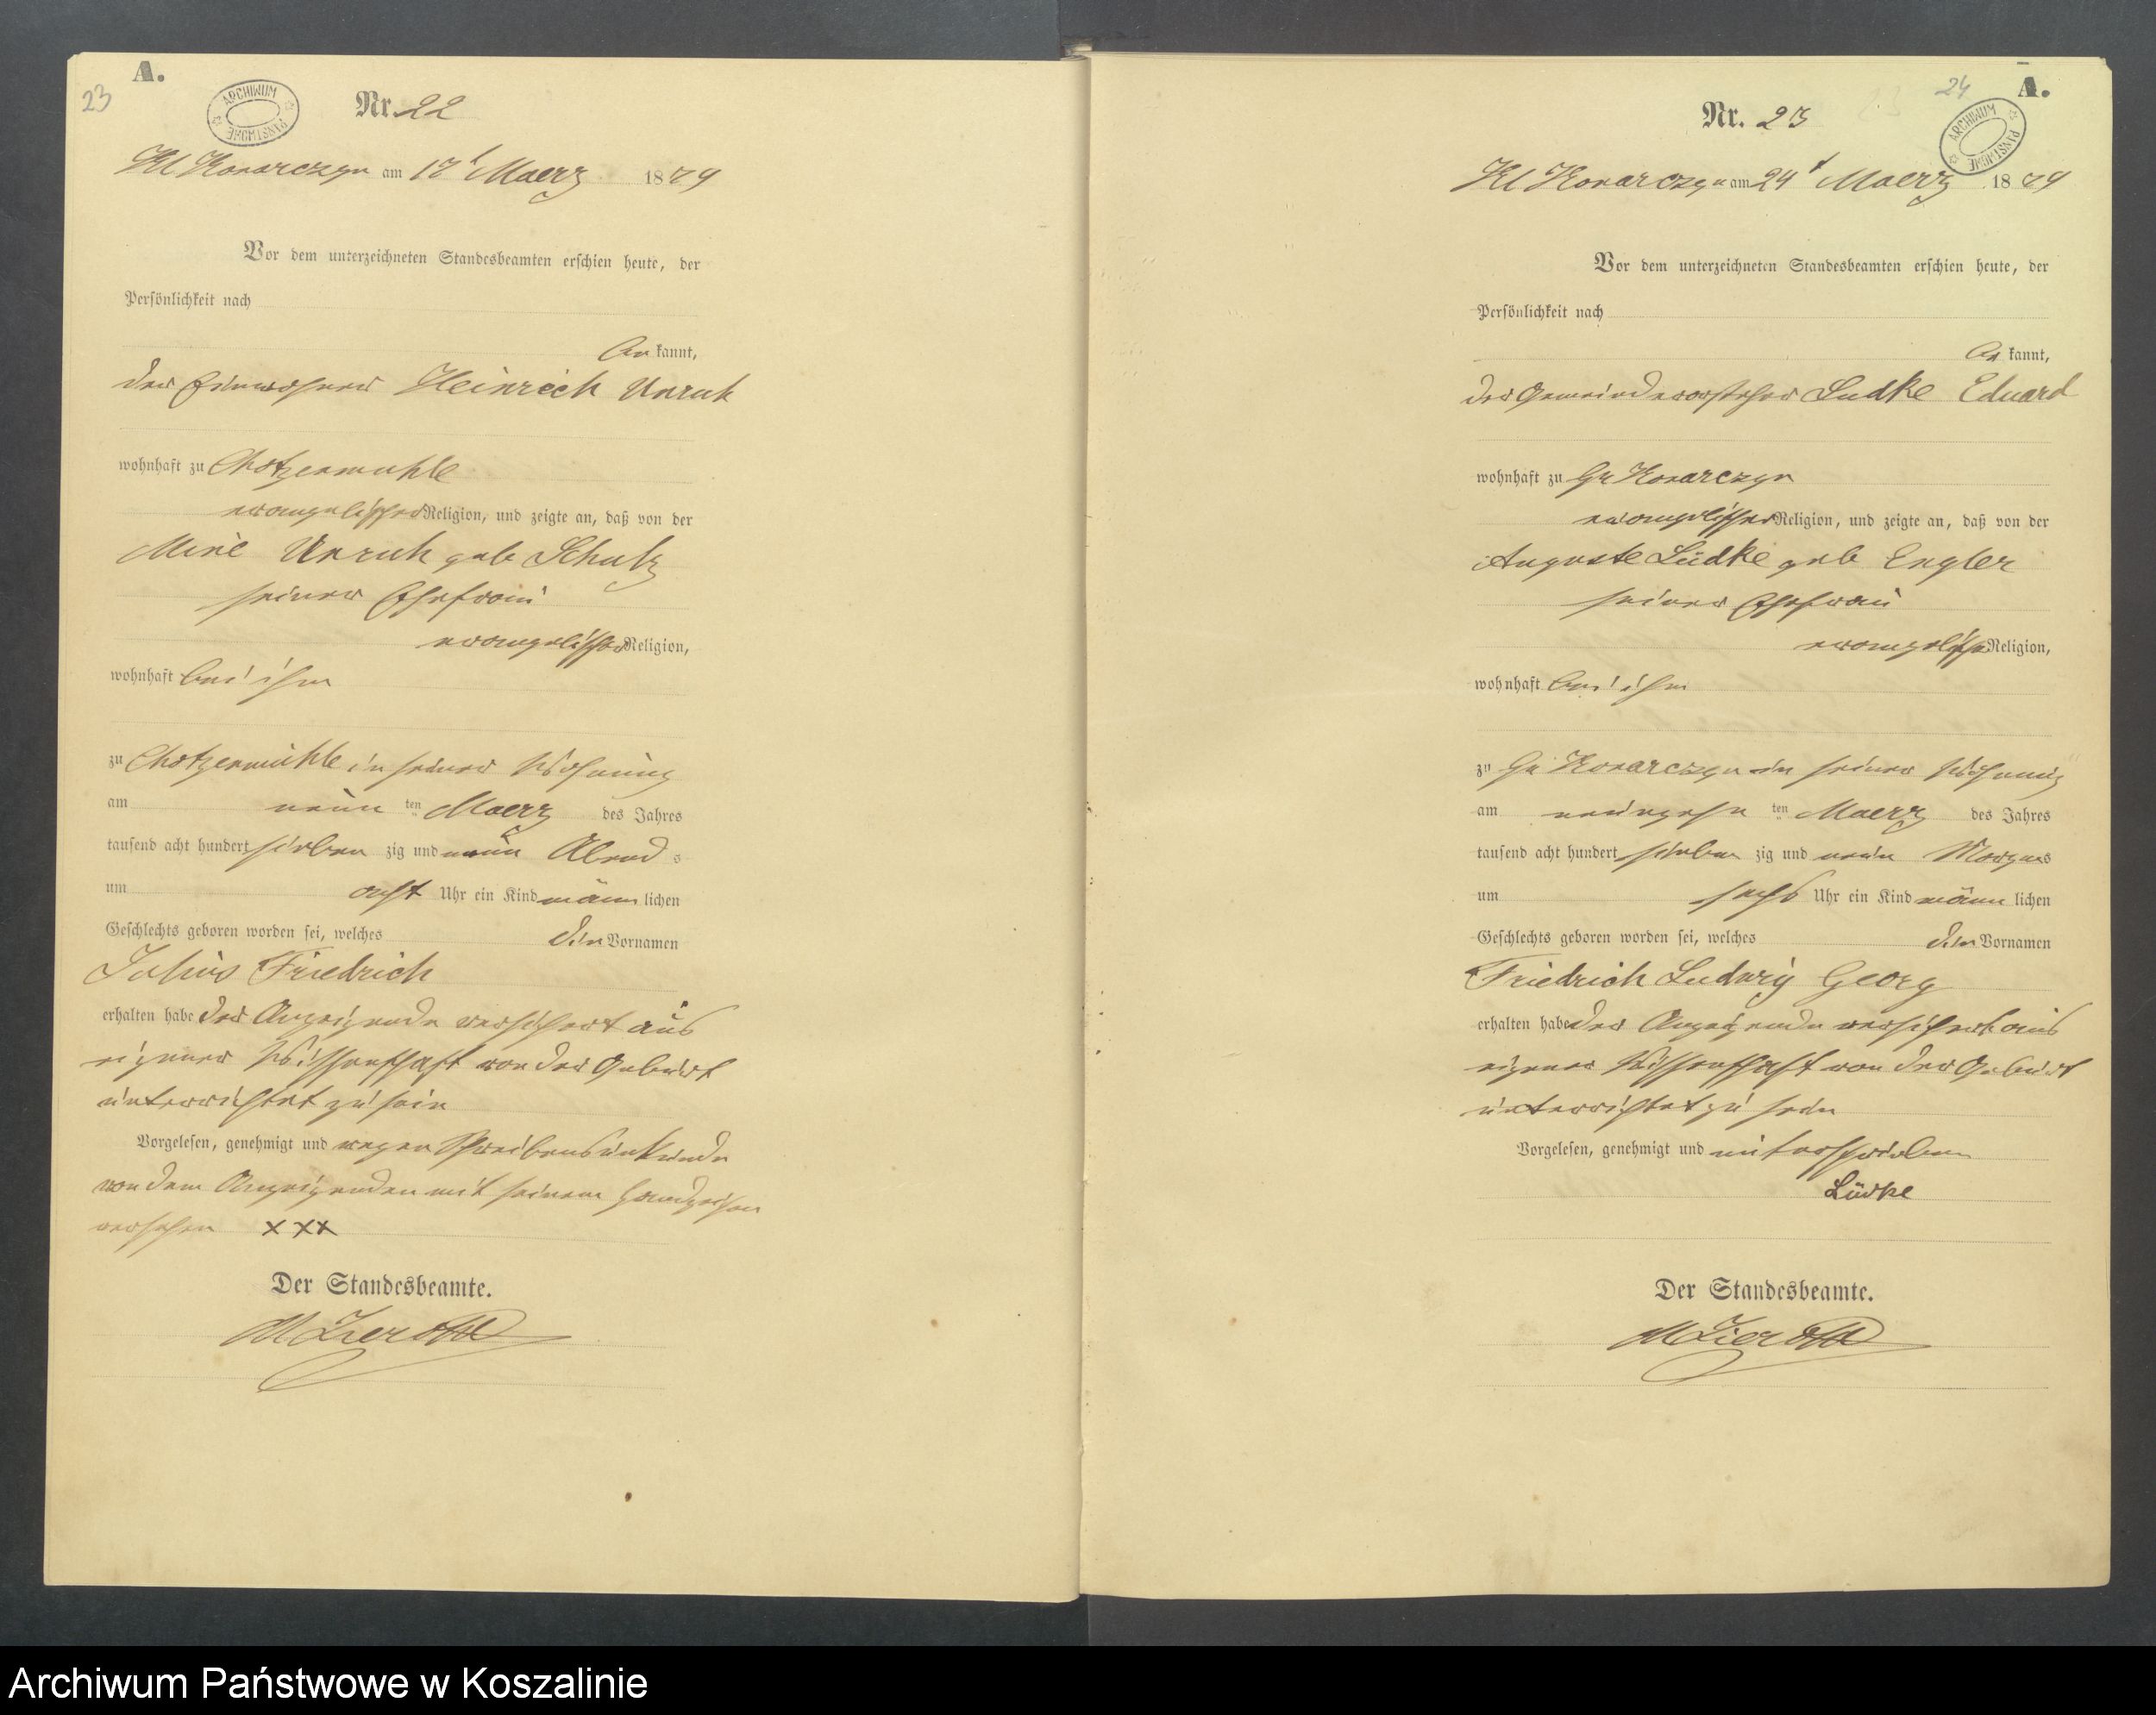 A.
23
ARCHIWUM PAŃSTWOWE
Nr. 22
Kl Konarczyn am 17t Maerz 1879
Vor dem unterzeichneten Standesbeamten erschien heute, der
Persönlichkeit nach
be kannt,
der Einwohner Heinrich Unruh
wohnhaft zu Chotzenmuhle
evangelischer Religion, und zeigte an, daß von der
Mine Unruh geb Schulz
seiner Ehefrau
evangelischer Religion,
wohnhaft bei ihm
zu Chotzenmühle in seiner Wohnung
am neun ten Maerz des Jahres
tausend acht hundert sieben zig und neun Abends
um acht Uhr ein Kind männ lichen
Geschlechts geboren worden sei, welches den Vornamen
Julius Friedrich
erhalten habe der Anzeigende versichert aus
eigener Wissenschaft von der Geburt
unterrichtet zu sein
Vorgelesen, genehmigt und wegen Schreibensunkunde
von dem Anzeigenden mit seinem Handzeichen
versehen XXX
Der Standesbeamte.
24
A.
ARCHIWUM PAŃSTWOWE
Nr. 23
Kl Konarczyn am 24t Maerz 1879
Vor dem unterzeichneten Standesbeamten erschien heute, der
Persönlichkeit nach
be kannt,
der Gemeindevorsteher Ludke Eduard
wohnhaft zu Gr Konarczyn
evangelischer Religion, und zeigte an, daß von der
Auguste Lüdke geb Engler
seiner Ehefrau
evangelischer Religion,
wohnhaft bei ihm
zu Gr Konarczyn in seiner Wohnung
am neunzehn ten Maerz des Jahres
tausend acht hundert sieben zig und neun Morgens
um sechs Uhr ein Kind männ lichen
Geschlechts geboren worden sei, welches den Vornamen
Friedrich Ludwig Georg
erhalten habe der Anzeigende versichert aus
eigener Wissenschaft von der Geburt
unterrichtet zu sein
Vorgelesen, genehmigt und unterschrieben
Lüdke
Der Standesbeamte.
Archiwum Państwowe w Koszalinie